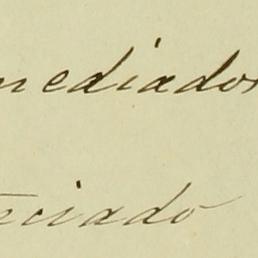 mediados
ciado